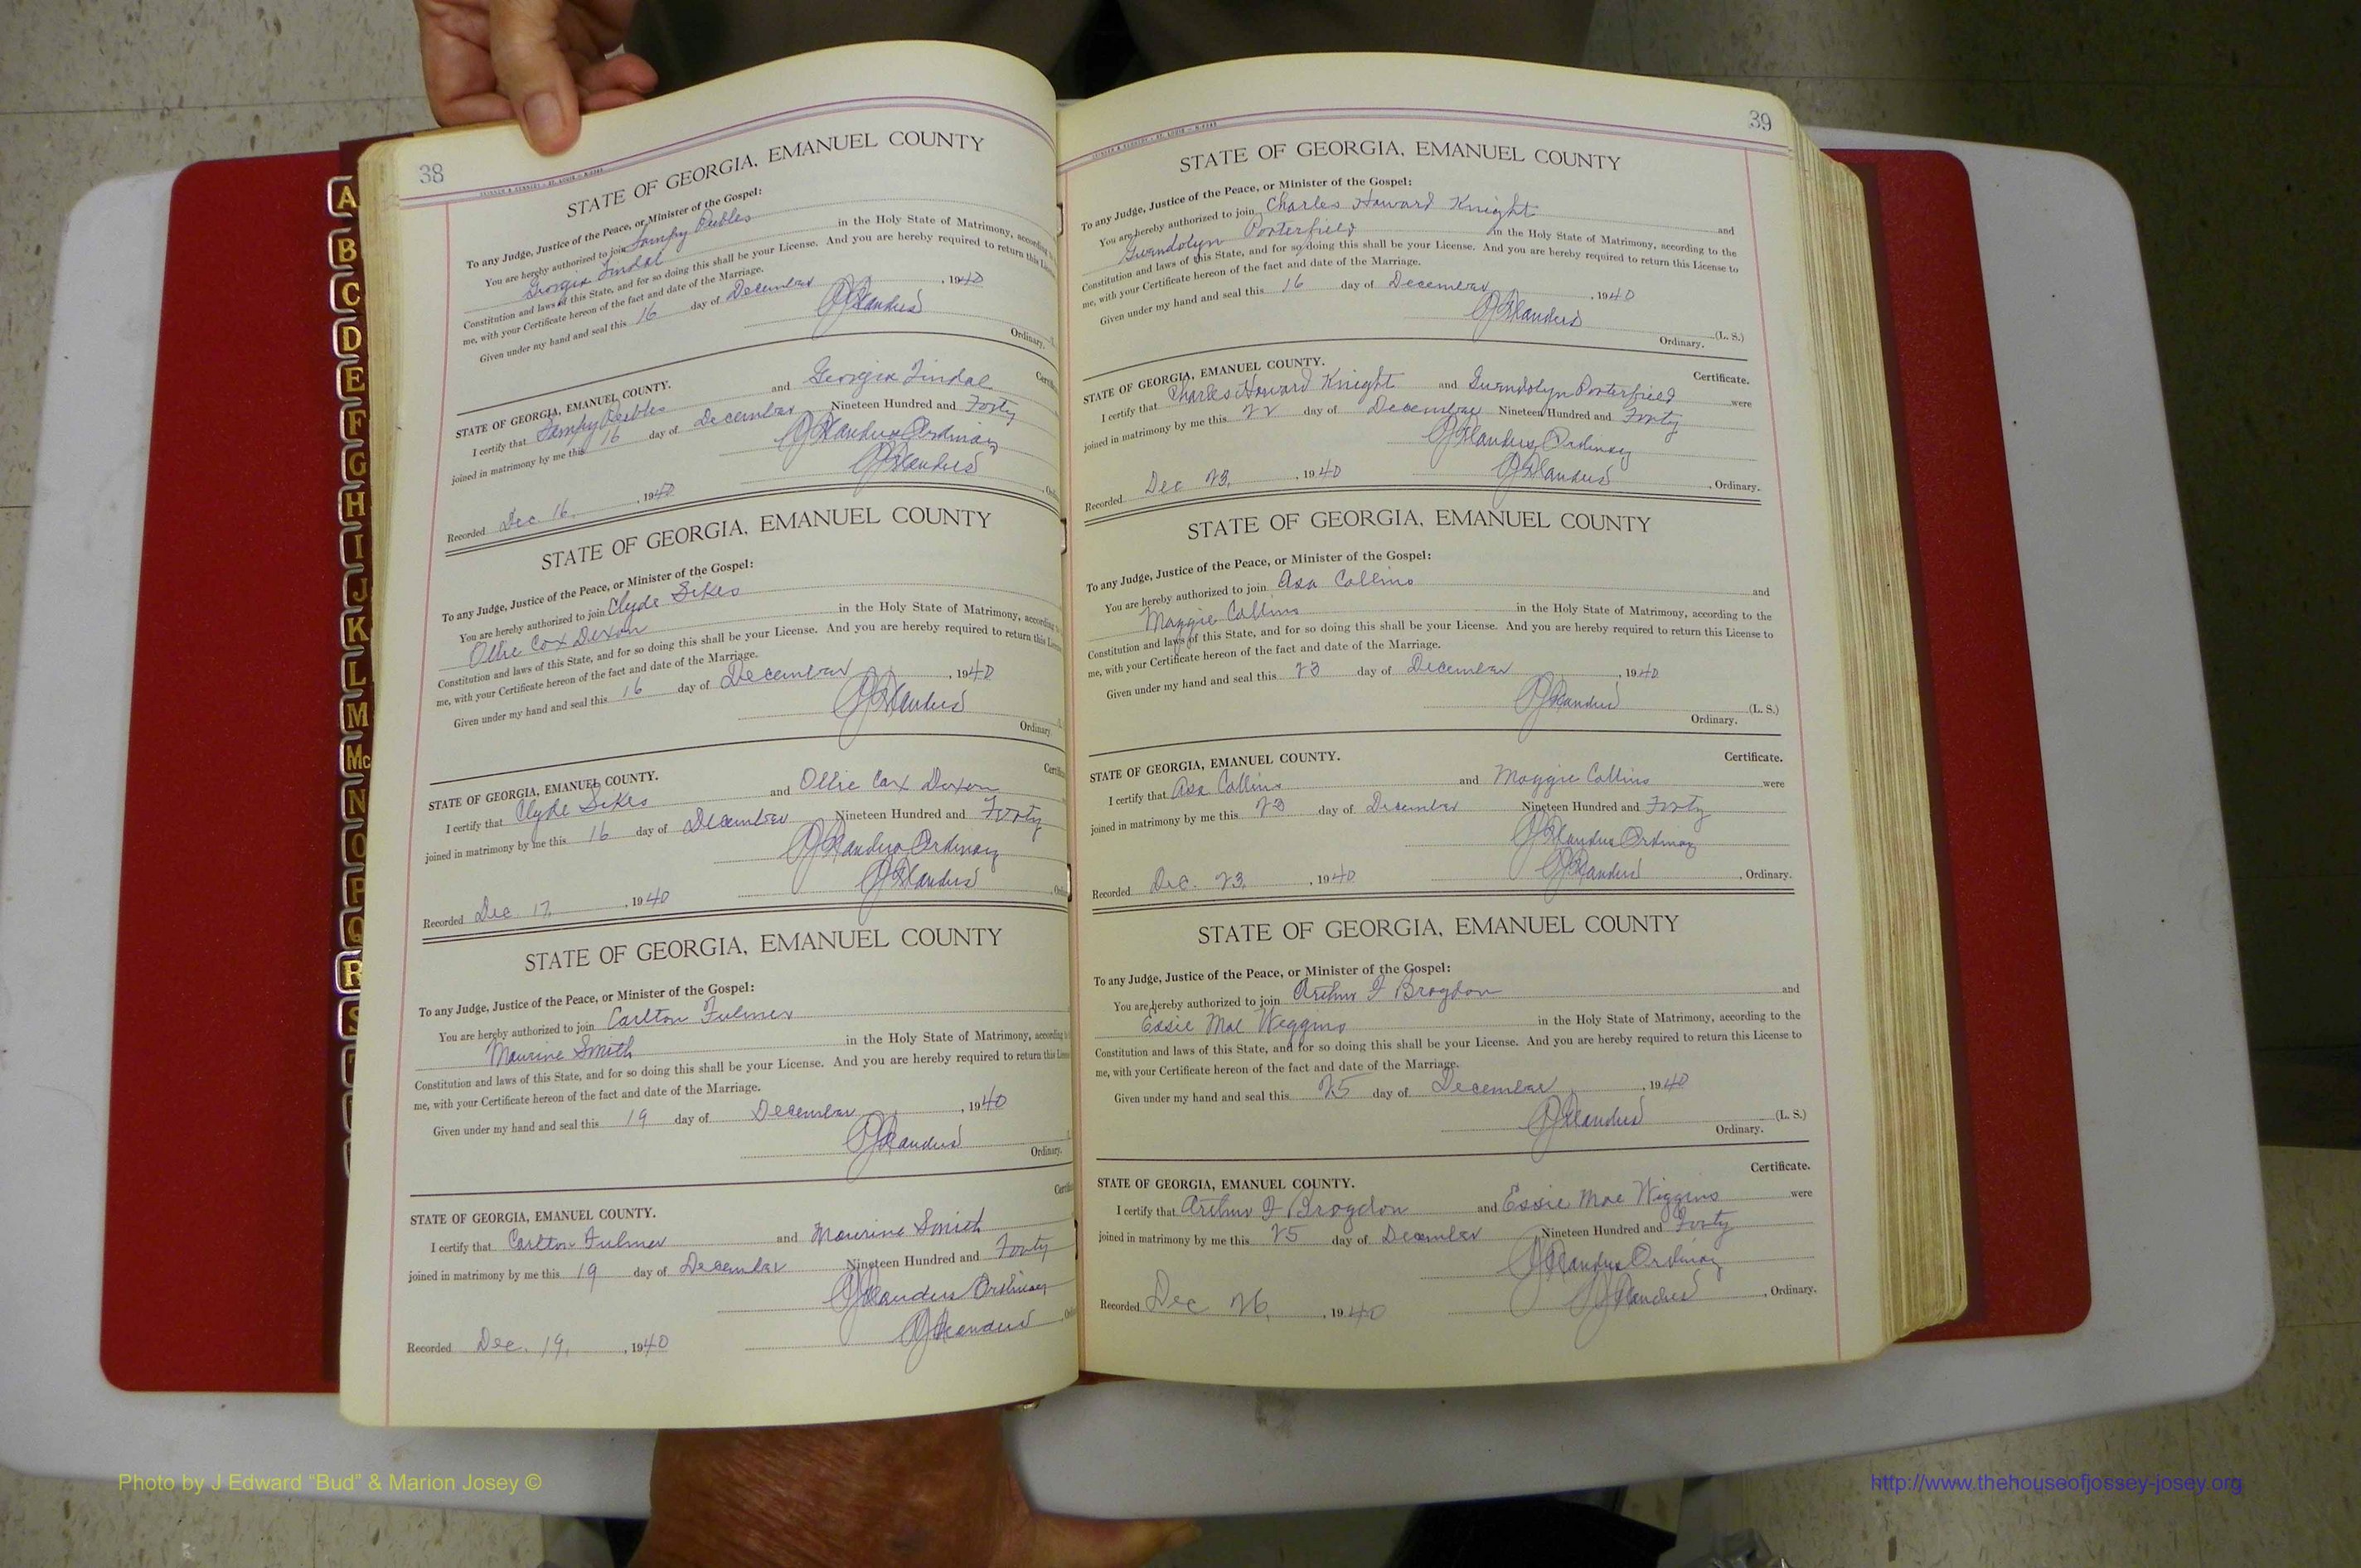 38
STATE OF GEORGIA, EMANUEL COUNTY
To any Judge, Justice of the Peace, or Minister of the Gospel:
You are hereby authorized to join Peebles
Georgia Tindal in the Holy State of Matrimony, according
Constitution and laws of this State, and for so doing this shall be your License. And you are hereby required to return this
me, with your Certificate hereon of the fact and date of the Marriage.
Given under my hand and seal this 16 day of December, 1940
Ordinary.
STATE OF GEORGIA, EMANUEL COUNTY.
I certify that Peebles and Georgia Tindal
joined in matrimony by me this 16 day of December Nineteen Hundred and Forty
Ordinary
Recorded Dec 16, 1940
STATE OF GEORGIA, EMANUEL COUNTY
To any Judge, Justice of the Peace, or Minister of the Gospel:
You are hereby authorized to join Clyde Sikes
Ollie Cox Dixon in the Holy State of Matrimony, according
Constitution and laws of this State, and for so doing this shall be your License. And you are hereby required to return this
me, with your Certificate hereon of the fact and date of the Marriage.
Given under my hand and seal this 16 day of December, 1940
Ordinary.
STATE OF GEORGIA, EMANUEL COUNTY.
I certify that Clyde Sikes and Ollie Cox Dixon
joined in matrimony by me this 16 day of December Nineteen Hundred and Forty
Ordinary
Recorded Dec. 17, 1940
STATE OF GEORGIA, EMANUEL COUNTY
To any Judge, Justice of the Peace, or Minister of the Gospel:
You are hereby authorized to join Carlton Fulmer
Maurine Smith in the Holy State of Matrimony, according
Constitution and laws of this State, and for so doing this shall be your License. And you are hereby required to return this
me, with your Certificate hereon of the fact and date of the Marriage.
Given under my hand and seal this 19 day of December, 1940
Ordinary.
STATE OF GEORGIA, EMANUEL COUNTY.
I certify that Carlton Fulmer and Maurine Smith
joined in matrimony by me this 19 day of December Nineteen Hundred and Forty
Ordinary
Recorded Dec. 19, 1940
39
STATE OF GEORGIA, EMANUEL COUNTY
To any Judge, Justice of the Peace, or Minister of the Gospel:
You are hereby authorized to join Charles Howard Knight and
Gwendolyn Porterfield in the Holy State of Matrimony, according to the
Constitution and laws of this State, and for so doing this shall be your License. And you are hereby required to return this License to
me, with your Certificate hereon of the fact and date of the Marriage.
Given under my hand and seal this 16 day of December, 1940
(L. S.)
Ordinary.
Certificate.
STATE OF GEORGIA, EMANUEL COUNTY.
I certify that Charles Howard Knight and Gwendolyn Porterfield were
joined in matrimony by me this 22 day of December Nineteen Hundred and Forty
Ordinary
Recorded Dec 23, 1940 , Ordinary.
STATE OF GEORGIA, EMANUEL COUNTY
To any Judge, Justice of the Peace, or Minister of the Gospel:
You are hereby authorized to join Asa Collins and
Maggie Collins in the Holy State of Matrimony, according to the
Constitution and laws of this State, and for so doing this shall be your License. And you are hereby required to return this License to
me, with your Certificate hereon of the fact and date of the Marriage.
Given under my hand and seal this 23 day of December, 1940
(L. S.)
Ordinary.
Certificate.
STATE OF GEORGIA, EMANUEL COUNTY.
I certify that Asa Collins and Maggie Collins were
joined in matrimony by me this 23 day of December Nineteen Hundred and Forty
Ordinary
Recorded Dec. 23, 1940 , Ordinary.
STATE OF GEORGIA, EMANUEL COUNTY
To any Judge, Justice of the Peace, or Minister of the Gospel:
You are hereby authorized to join Arthur I Brogdon and
Essie Mae Wiggins in the Holy State of Matrimony, according to the
Constitution and laws of this State, and for so doing this shall be your License. And you are hereby required to return this License to
me, with your Certificate hereon of the fact and date of the Marriage.
Given under my hand and seal this 25 day of December, 1940
(L. S.)
Ordinary.
Certificate.
STATE OF GEORGIA, EMANUEL COUNTY.
I certify that Arthur I Brogdon and Essie Mae Wiggins were
joined in matrimony by me this 25 day of December Nineteen Hundred and Forty
Ordinary
Recorded Dec 26, 1940 , Ordinary.
A
B
C
D
E
F
G
H
I
J
K
L
M
Mc
N
O
P
Q
R
S
Photo by J Edward “Bud” & Marion Josey ©
http://www.thehouseofjossey-josey.org